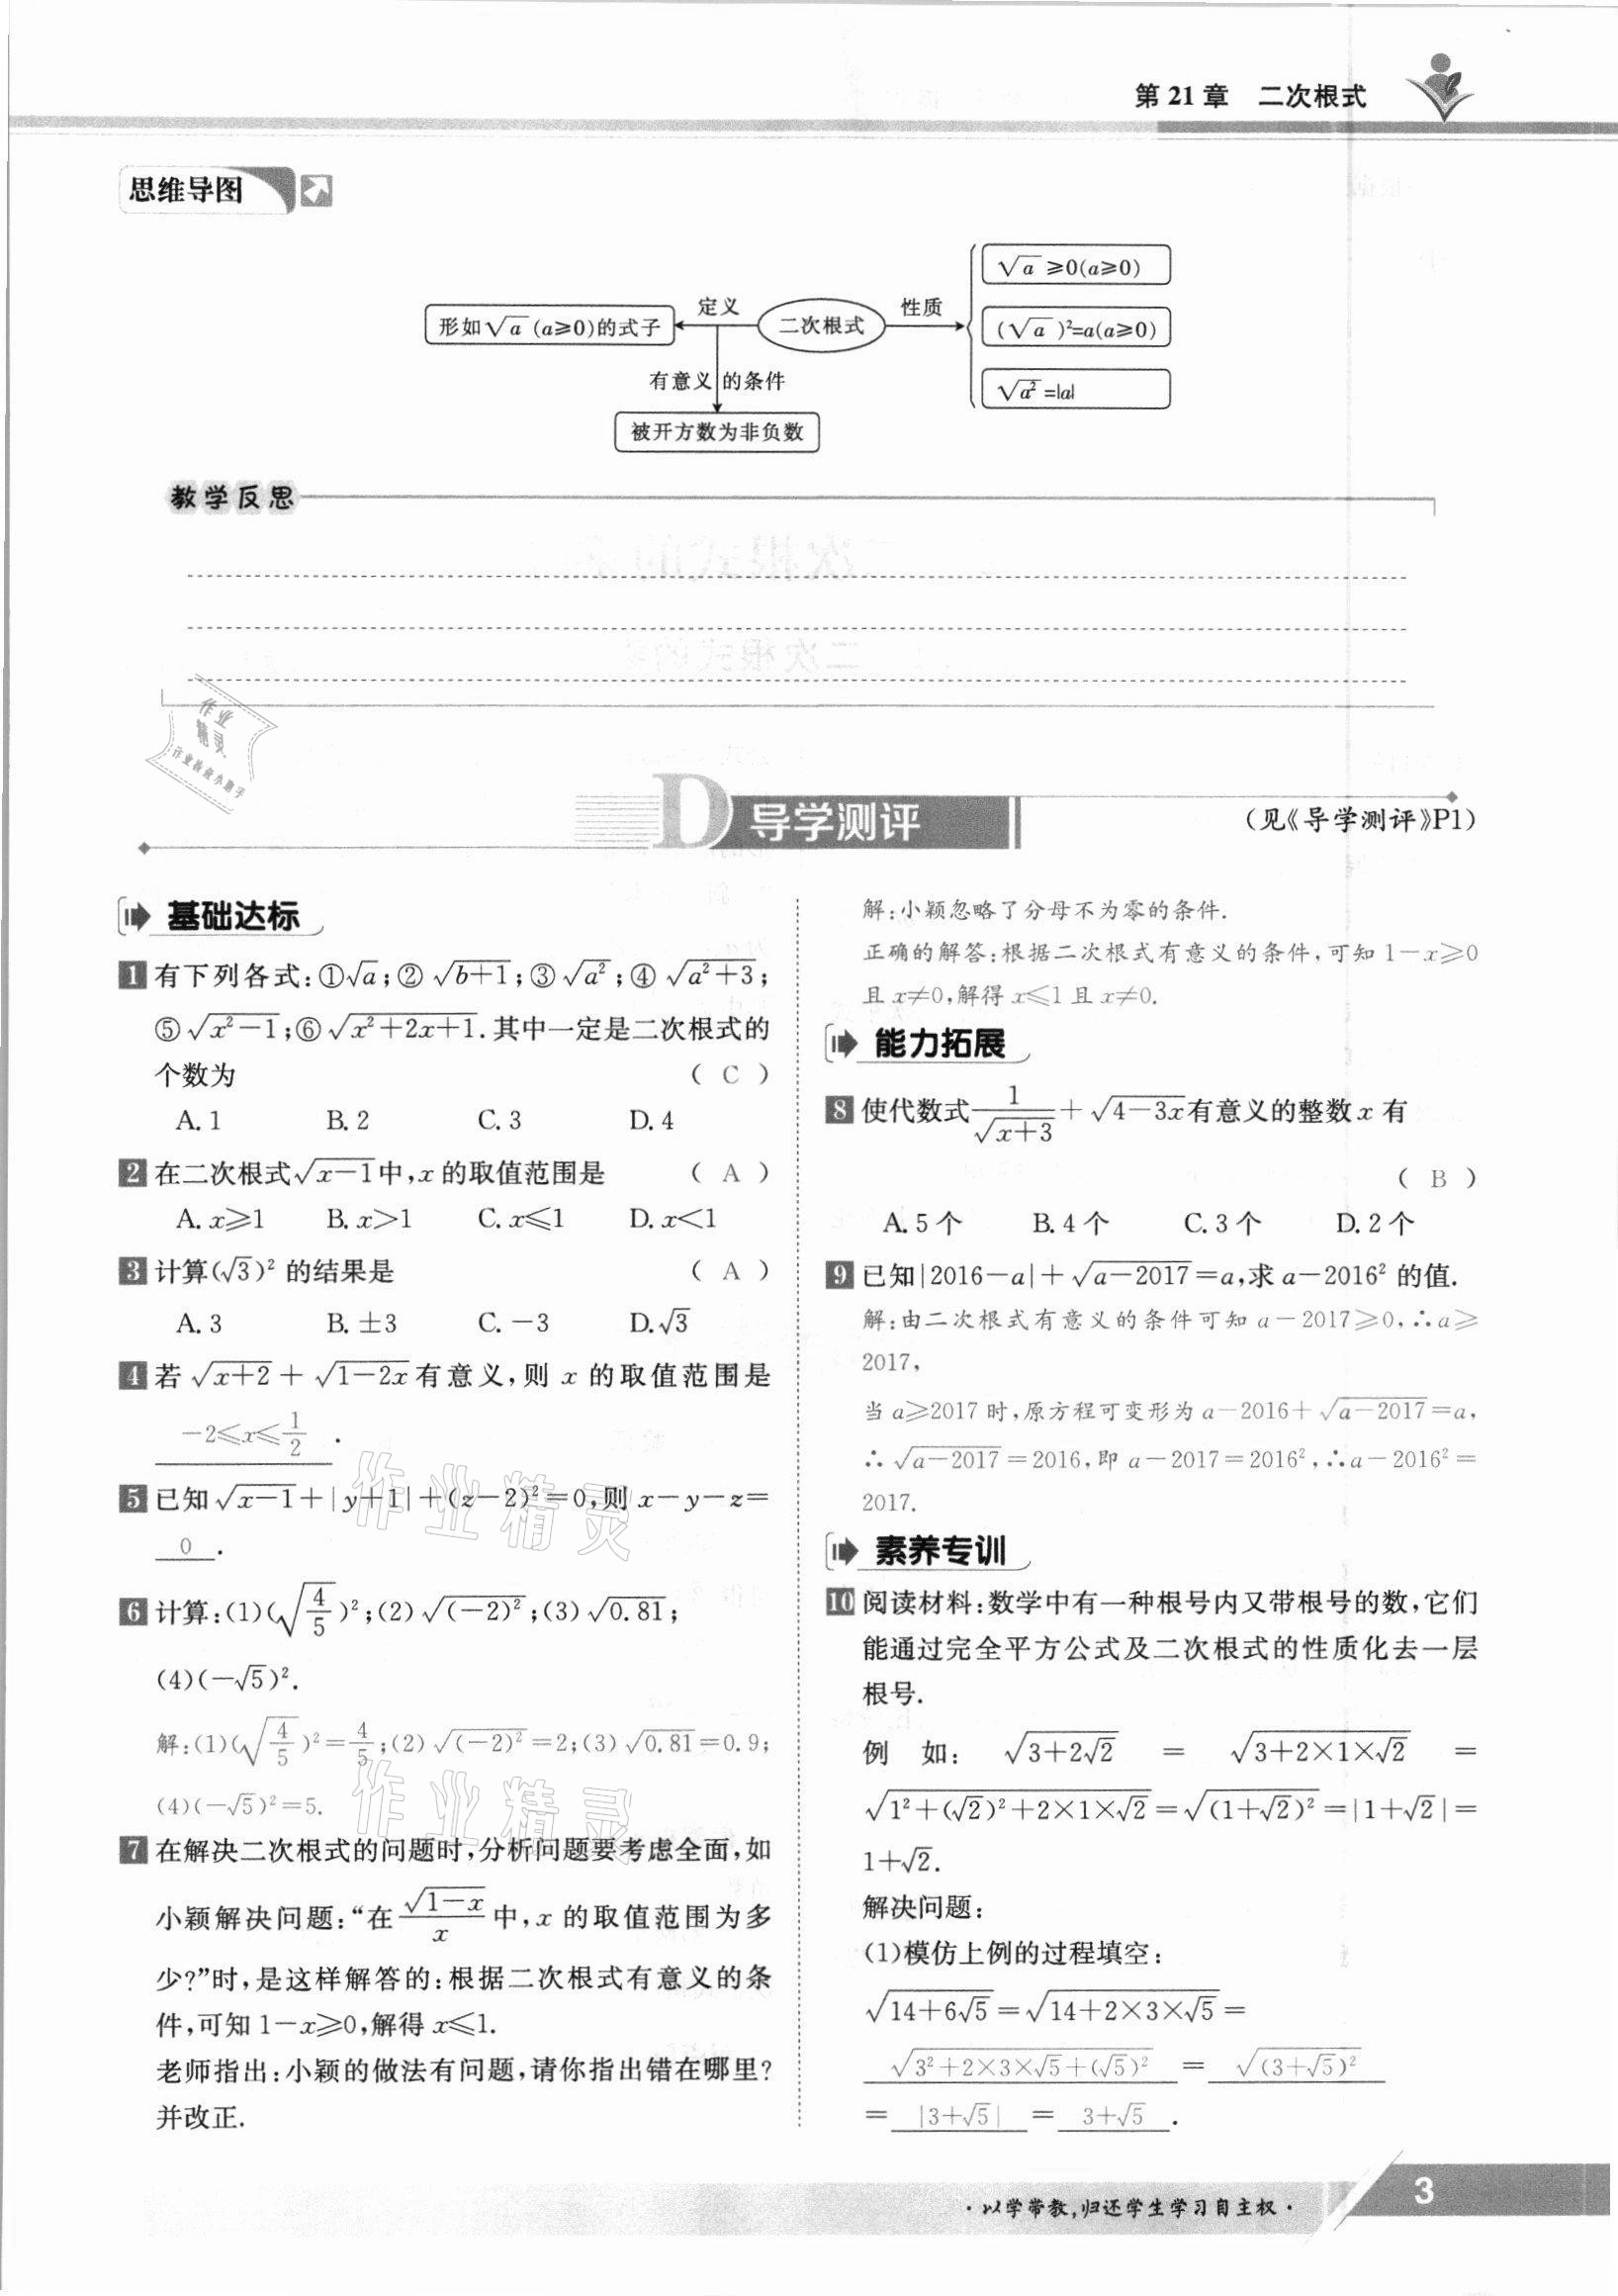 第 21 章 二次根式
思维导图
形如√a (a≥0)的式子
定义
二次根式
性质
√a ≥0(a≥0)
(√a )²=a(a≥0)
√a² =|a|
有意义 的条件
被开方数为非负数
教学反思
作业
精灵
作业检查小助手
D 导学测评
(见《导学测评》P1)
基础达标
1 有下列各式:①√a;② √(b+1);③ √(a²);④ √(a²+3);
⑤√(x²-1);⑥√(x²+2x+1).其中一定是二次根式的
个数为 ( C )
A. 1 B. 2 C. 3 D. 4
2 在二次根式√(x-1)中,x 的取值范围是 ( A )
A. x≥1 B. x>1 C. x≤1 D. x<1
3 计算(√3)² 的结果是 ( A )
A. 3 B. ±3 C. -3 D.√3
4 若 √(x+2) + √(1-2x) 有意义,则 x 的取值范围是
-2≤x≤1/2 .
5 已知√(x-1)+|y+1|+(z-2)²=0,则 x-y-z=
0 .
6 计算:(1)(√(4/5))²;(2)√((-2)²);(3)√0.81;
(4)(-√5)².
解:(1)(√(4/5))²=4/5;(2)√((-2)²)=2;(3)√0.81=0.9;
(4)(-√5)²=5.
7 在解决二次根式的问题时,分析问题要考虑全面,如
小颖解决问题:“在√(1-x)/x中,x 的取值范围为多
少?”时,是这样解答的:根据二次根式有意义的条
件,可知 1-x≥0,解得 x≤1.
老师指出:小颖的做法有问题,请你指出错在哪里?
并改正.
解:小颖忽略了分母不为零的条件.
正确的解答:根据二次根式有意义的条件,可知 1-x≥0
且 x≠0,解得 x≤1 且 x≠0.
能力拓展
8 使代数式1/√(x+3)+√(4-3x)有意义的整数 x 有
( B )
A. 5 个 B. 4 个 C. 3 个 D. 2 个
9 已知|2016-a|+√(a-2017)=a,求 a-2016² 的值.
解:由二次根式有意义的条件可知 a-2017≥0,∴a≥
2017,
当 a≥2017 时,原方程可变形为 a-2016+√(a-2017)=a,
∴√(a-2017)=2016,即 a-2017=2016²,∴a-2016²=
2017.
素养专训
10 阅读材料:数学中有一种根号内又带根号的数,它们
能通过完全平方公式及二次根式的性质化去一层
根号.
例如: √(3+2√2) = √(3+2×1×√2) =
√(1²+(√2)²+2×1×√2)=√((1+√2)²)=|1+√2|=
1+√2.
解决问题:
(1)模仿上例的过程填空:
√(14+6√5)=√(14+2×3×√5)=
√(3²+2×3×√5+(√5)²) = √((3+√5)²)
= |3+√5| = 3+√5 .
作业精灵
作业精灵
·以学带教,归还学生学习自主权·
3